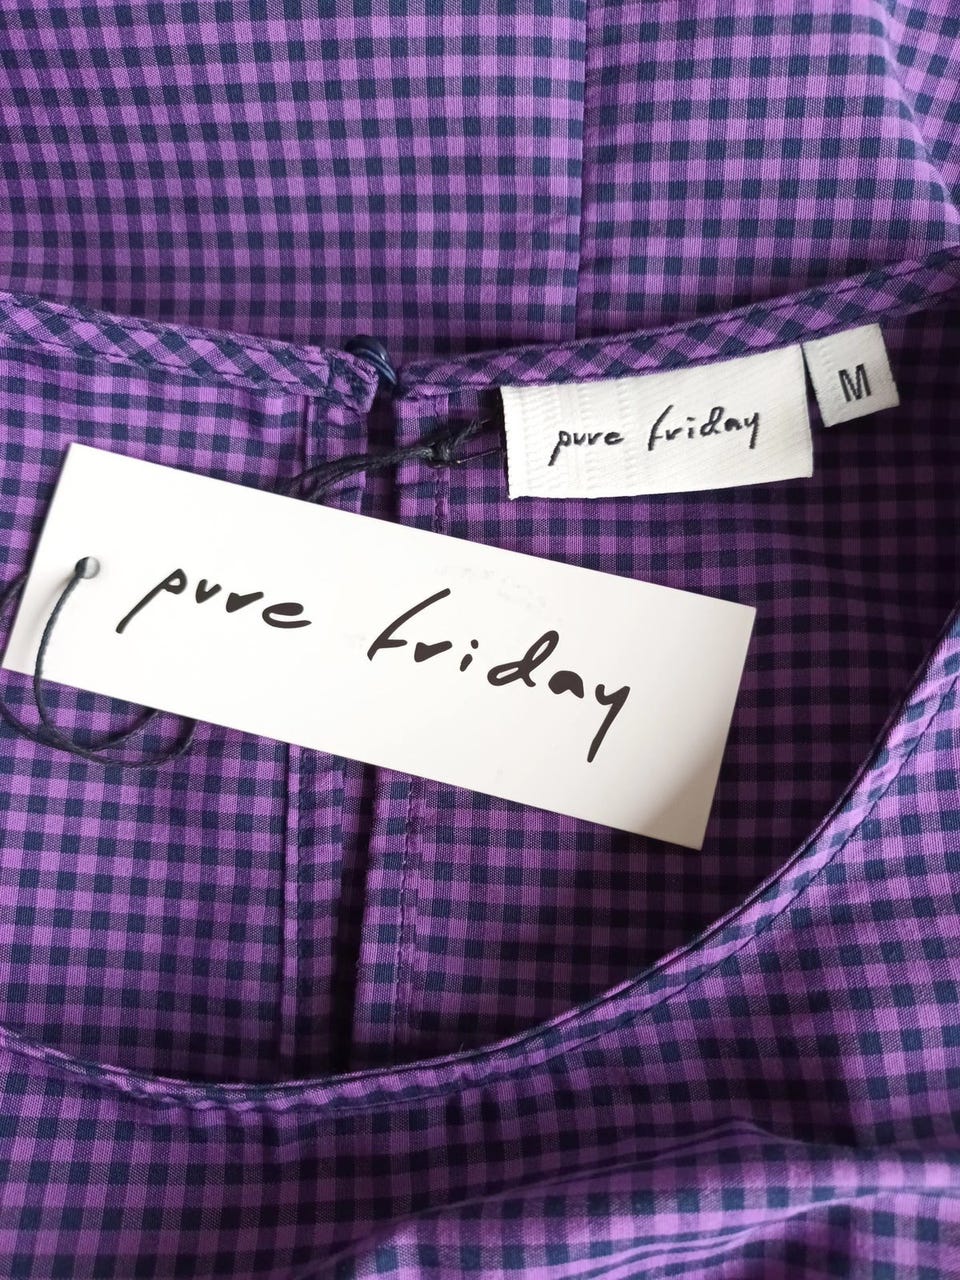 pure friday
M
pure friday